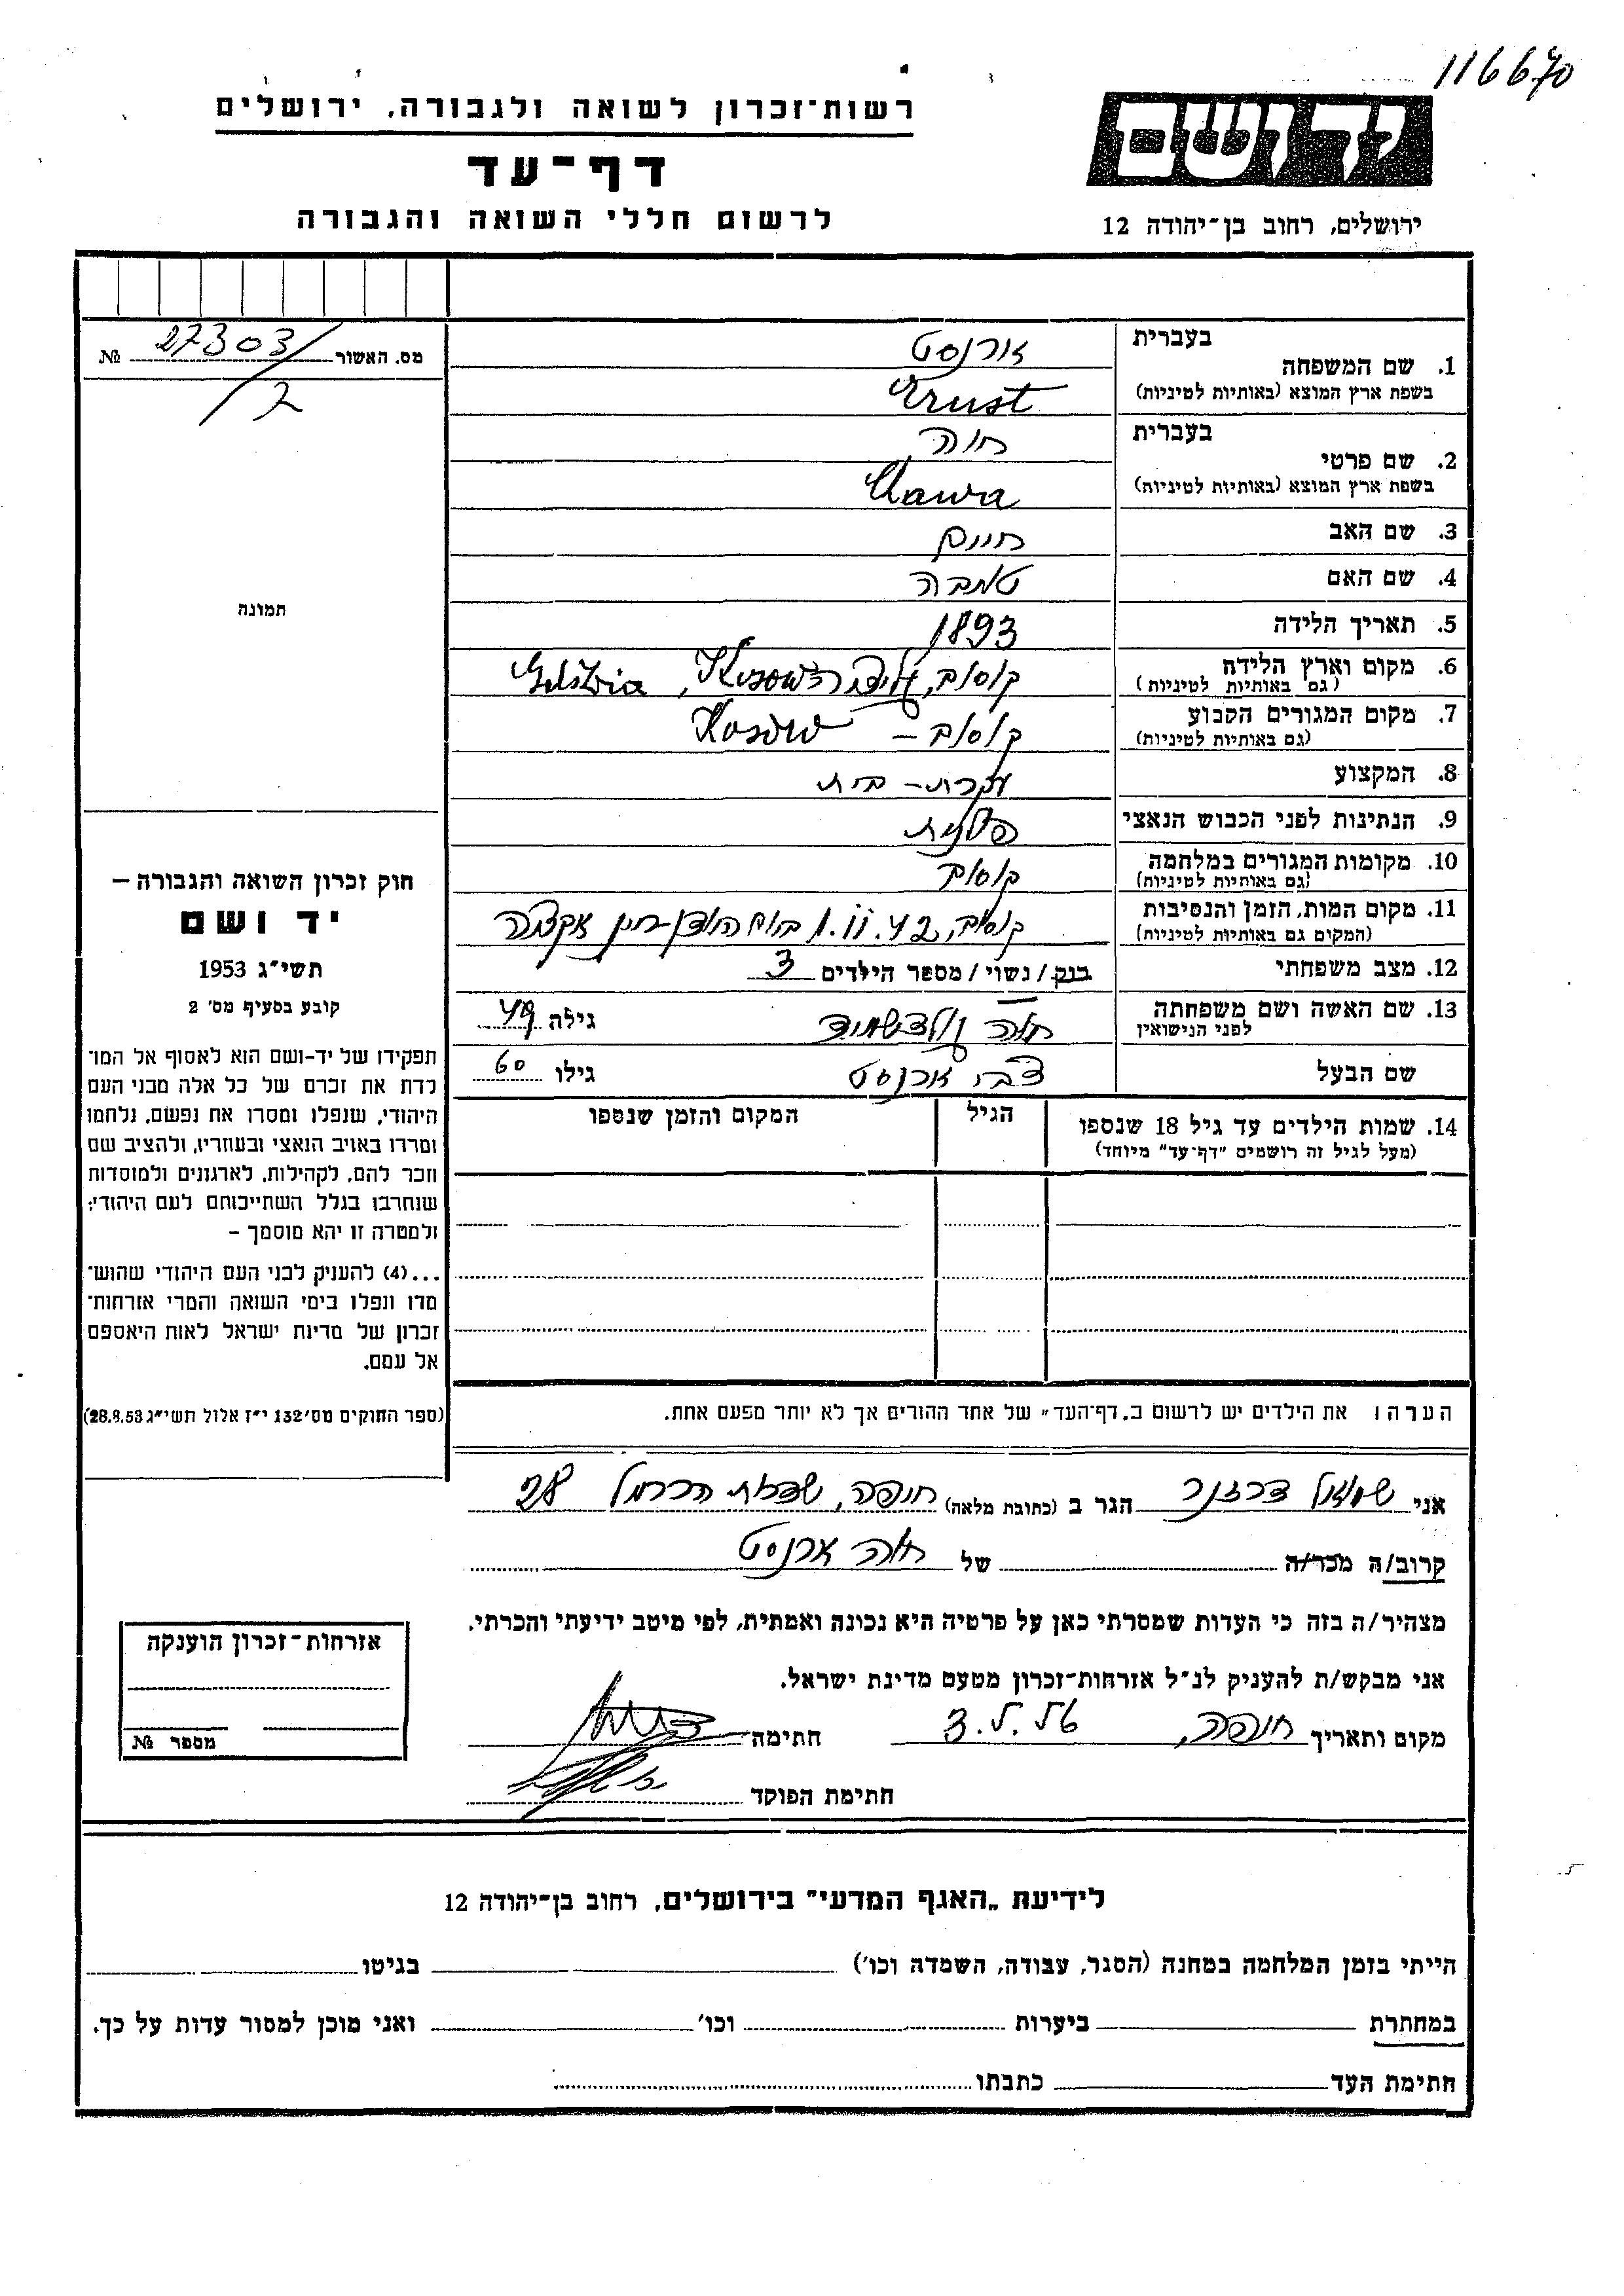 116670
רשות־זכרון לשואה ולגבורה, ירושלים
דף־עד
לרשום חללי השואה והגבורה
יד ושם
ירושלים, רחוב בן־יהודה 12
מס. האשור 27303/ №
בעברית
1. שם המשפחה ארנסט
בשפת ארץ המוצא (באותיות לטיניות) Ernst
בעברית
2. שם פרטי חוה
בשפת ארץ המוצא (באותיות לטיניות) Chawa
3. שם האב חיים
4. שם האם
5. תאריך הלידה 1893
6. מקום וארץ הלידה קוסוב,
(גם באותיות לטיניות)
7. מקום המגורים הקבוע קוסוב – Kosów
(גם באותיות לטיניות)
8. המקצוע עקרת־בית
9. הנתינות לפני הכבוש הנאצי פולנית
10. מקומות המגורים במלחמה קוסוב
(גם באותיות לטיניות)
11. מקום המות, הזמן והנסיבות קוסוב, 1.11.42 אקציה
(המקום גם באותיות לטיניות)
12. מצב משפחתי רוק / נשוי / מספר הילדים 3
13. שם האשה ושם משפחתה חוה גולדשמיד גילה 49
לפני הנישואין
שם הבעל צבי ארנסט גילו 60
14. שמות הילדים עד גיל 18 שנספו הגיל המקום והזמן שנספו
(מעל לגיל זה רושמים "דף־עד" מיוחד)
הערה: את הילדים יש לרשום ב„דף־העד" של אחד ההורים אך לא יותר מפעם אחת.
תמונה
חוק זכרון השואה והגבורה –
יד ושם
תשי"ג 1953
קובע בסעיף מס' 2
תפקידו של יד-ושם הוא לאסוף אל המו־
לדת את זכרם של כל אלה מבני העם
היהודי, שנפלו ומסרו את נפשם, נלחמו
ומרדו באויב הנאצי ובעוזריו, ולהציב שם
וזכר להם, לקהילות, לארגונים ולמוסדות
שנחרבו בגלל השתייכותם לעם היהודי;
ולמטרה זו יהא מוסמך –
...(4) להעניק לבני העם היהודי שהוש־
מדו ונפלו בימי השואה והמרי אזרחות־
זכרון של מדינת ישראל לאות היאספם
אל עמם.
(ספר החוקים מס' 132 י"ז אלול תשי"ג 28.8.53)
אני שמואל הגר ב (כתובת מלאה) חיפה, הכרמל 28
קרוב/ה מכר/ה של חוה ארנסט
מצהיר/ה בזה כי העדות שמסרתי כאן על פרטיה היא נכונה ואמתית, לפי מיטב ידיעתי והכרתי.
אני מבקש/ת להעניק לנ"ל אזרחות־זכרון מטעם מדינת ישראל.
מקום ותאריך חיפה, חתימה
חתימת הפוקד
אזרחות־זכרון הוענקה
מספר №
לידיעת „האגף המדעי" בירושלים, רחוב בן־יהודה 12
הייתי בזמן המלחמה במחנה (הסגר, עבודה, השמדה וכו') בגיטו
במחתרת ביערות וכו' ואני מוכן למסור עדות על כך.
חתימת העד כתבתו